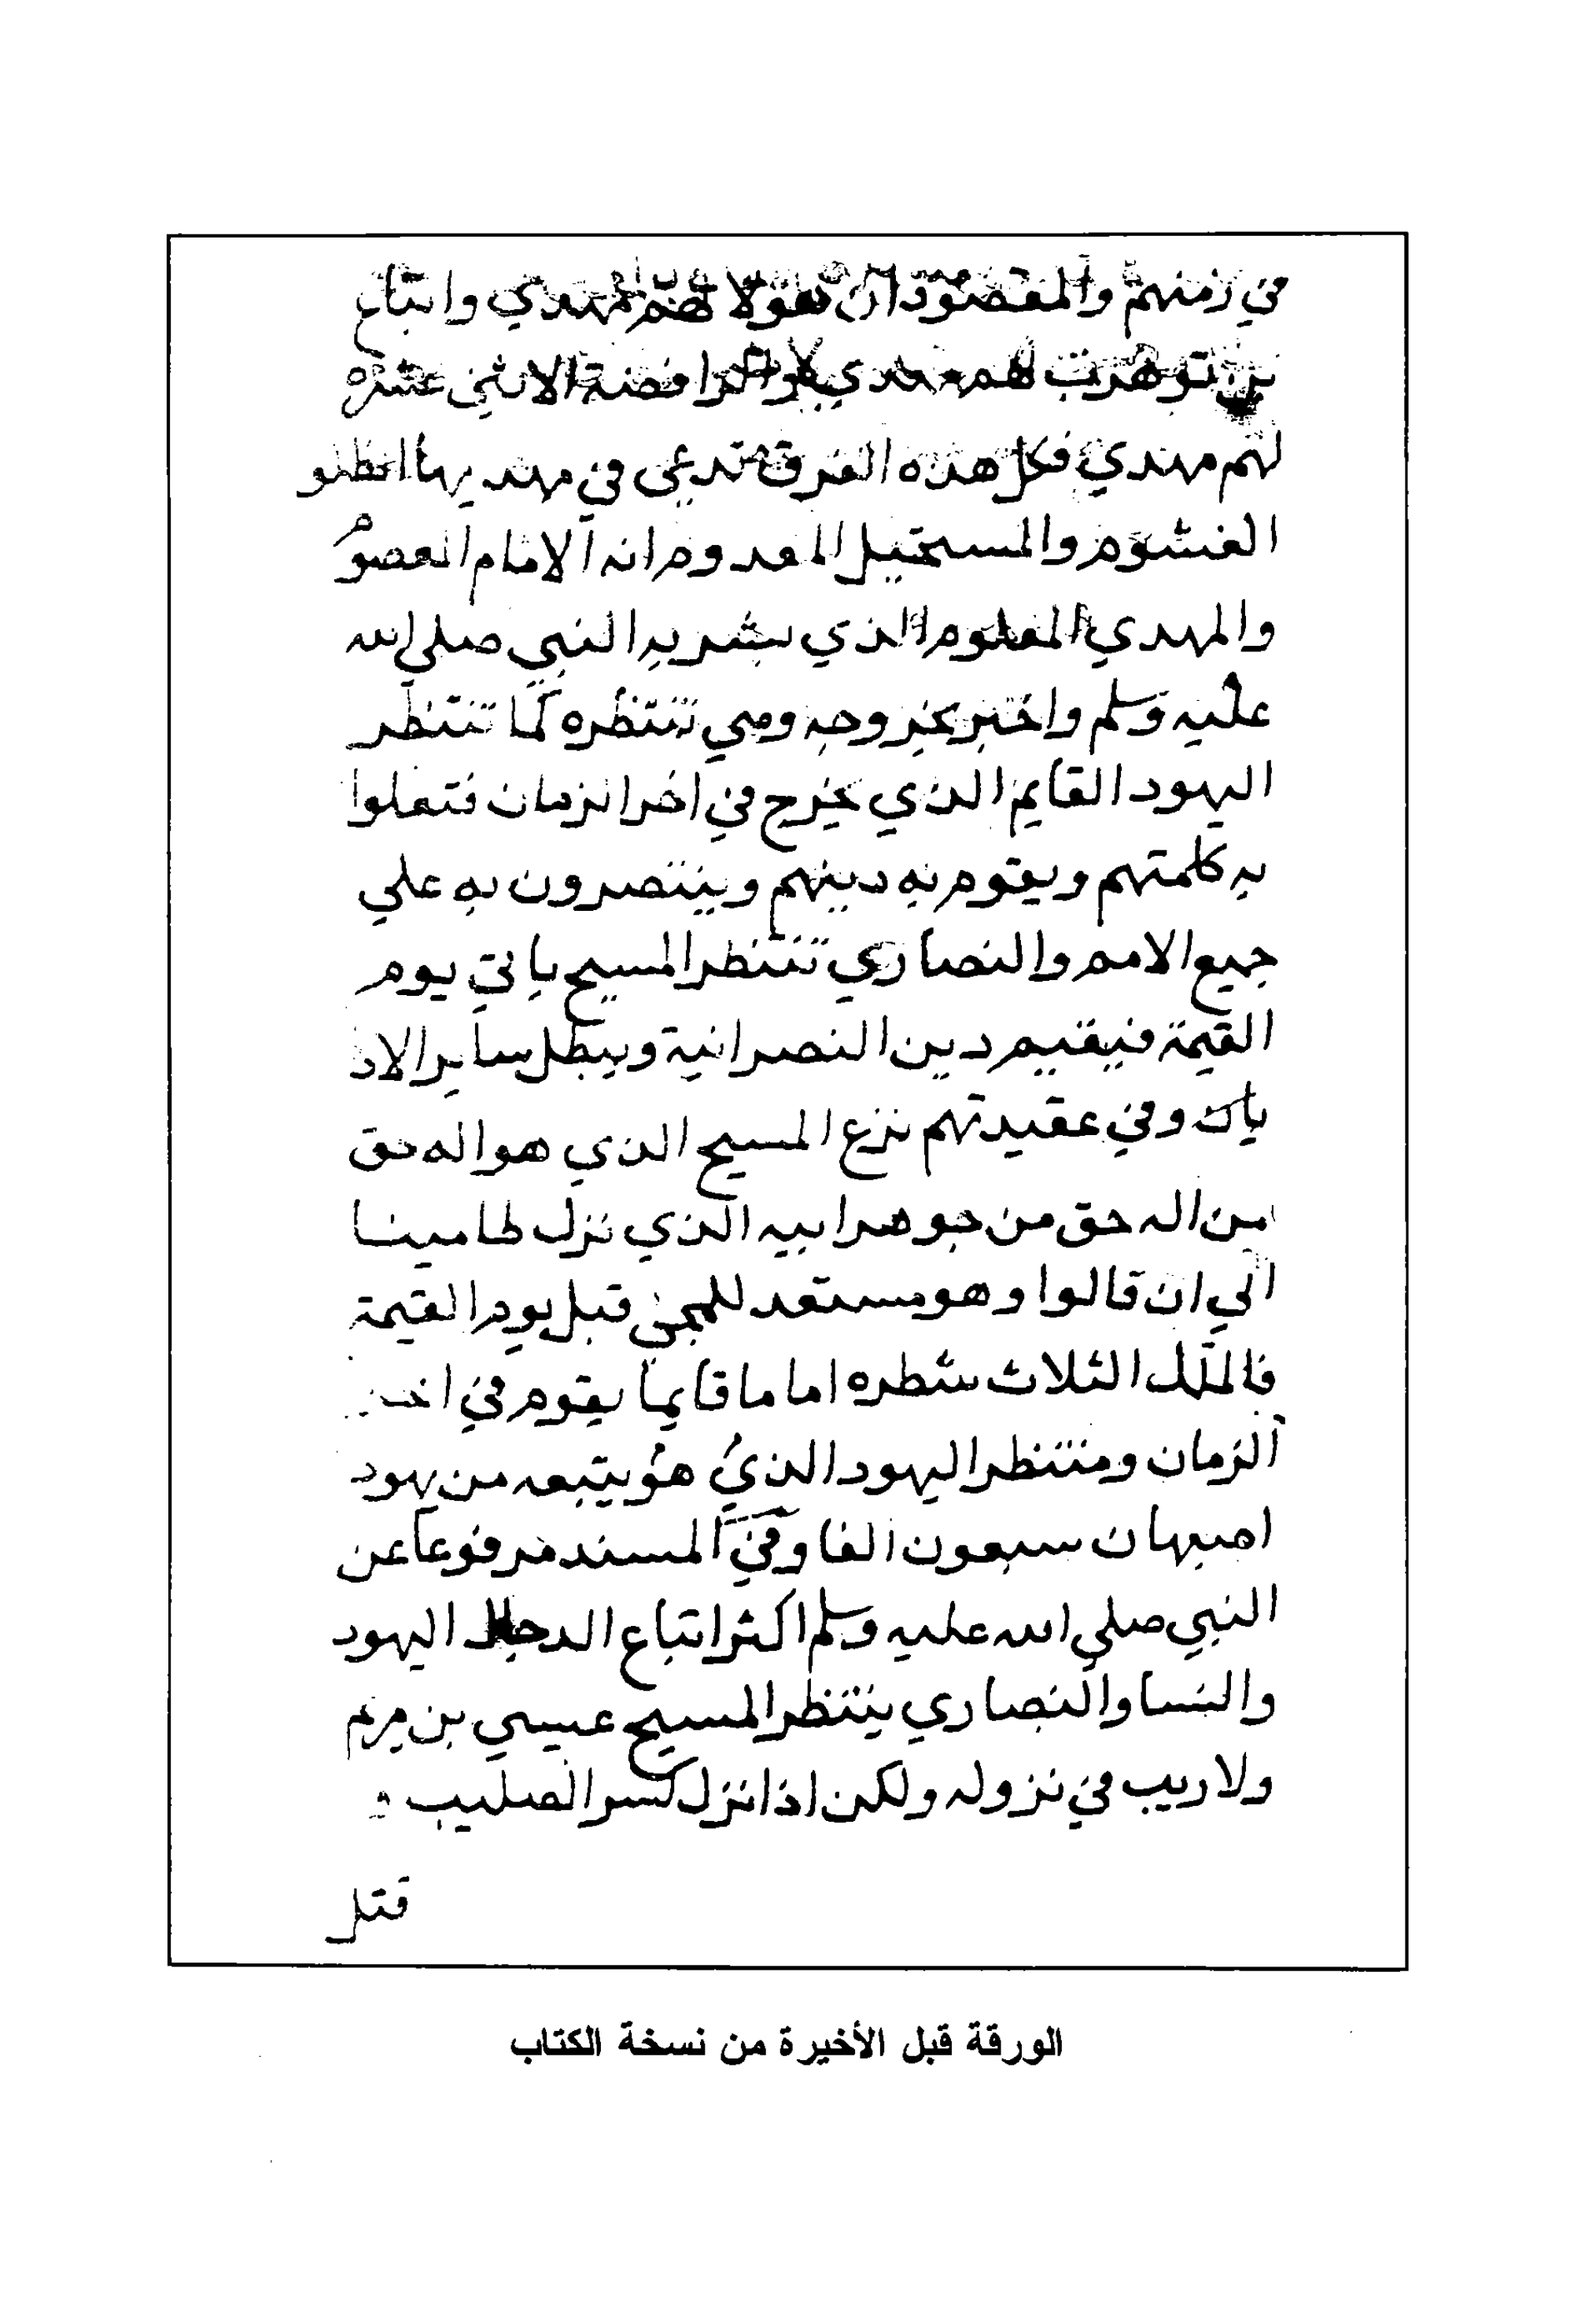 في زمنهم والمقصود ان هولا لهم مهدي واتباع
بن تومرت لهم مهدي والرافضة الاثني عشره
لهم مهدي فكل هذه الفرق تدعي في مهديها الظلو
الغشوم والمستحيل المعدوم انه الامام المعصوم
والمهدي المعلوم الذي بشر به النبي صلي الله
عليه وسلم واخبر بخروجه وهي تنتظره كما تنتظر
اليهود القايم الذي يخرج في اخر الزمان فتعلوا
به كلمتهم ويقوم به دينهم وينتصرون به علي
جميع الامم والنصاري تنتظر المسيح ياتي يوم
القيمة فيقيم دين النصرانية ويبطل ساير الاد
يان وفي عقيدتهم نزع المسيح الذي هو اله حق
من اله حق من جوهر ابيه الذي نزل طامينا
الي ان قالوا وهو مستعد للمجئ قبل يوم القيمة
فالملل الثلاث اماما قايما يقوم في اخر
الزمان ومنتظر اليهود الذي هو يتبعه من يهود
اصبهان سبعون الفا وفي المسند مرفوعا عن
النبي صلي الله عليه وسلم اكثر اتباع الدجال اليهود
والنسا والنصاري ينتظر المسيح عيسي بن مريم
ولا ريب في نزوله ولكن اذا نزل كسر الصليب و
قتل
الورقة قبل الأخيرة من نسخة الكتاب